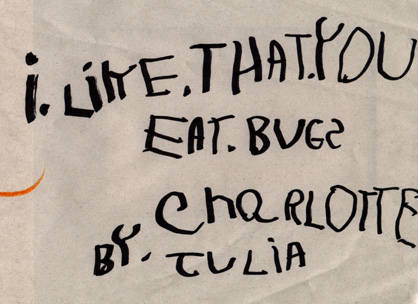 i. LiKE. THAT. YOU
EAT. BUGS
ChaRLOTTE
BY. JULiA